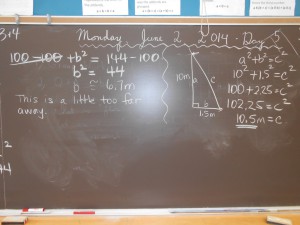 3,+4
Monday June 2 2014 - Day 5
100 - 100 + b² = 144 - 100
b² = 44
b = 6.7m
This is a little too far
away.
10m
a
c
b
1.5m
a² + b² = c²
10² + 1.5² = c²
100 + 2.25 = c²
102.25 = c²
10.5m = c
2
44